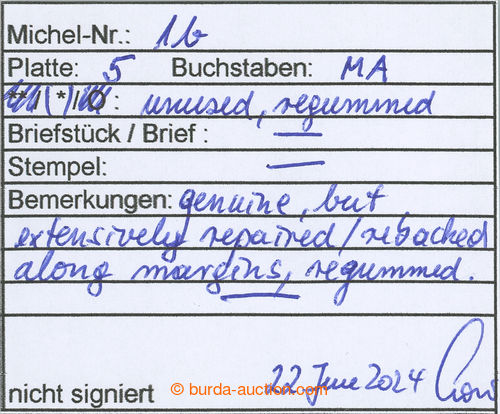 Michel-Nr.: 1b
Platte: 5 Buchstaben: MA
**/(*)/⊙: unused, regummed
Briefstück / Brief : —
Stempel: —
Bemerkungen: genuine, but
extensively repaired/rebacked
along margins, regummed.
22 June 2024
nicht signiert © burda-auction.com